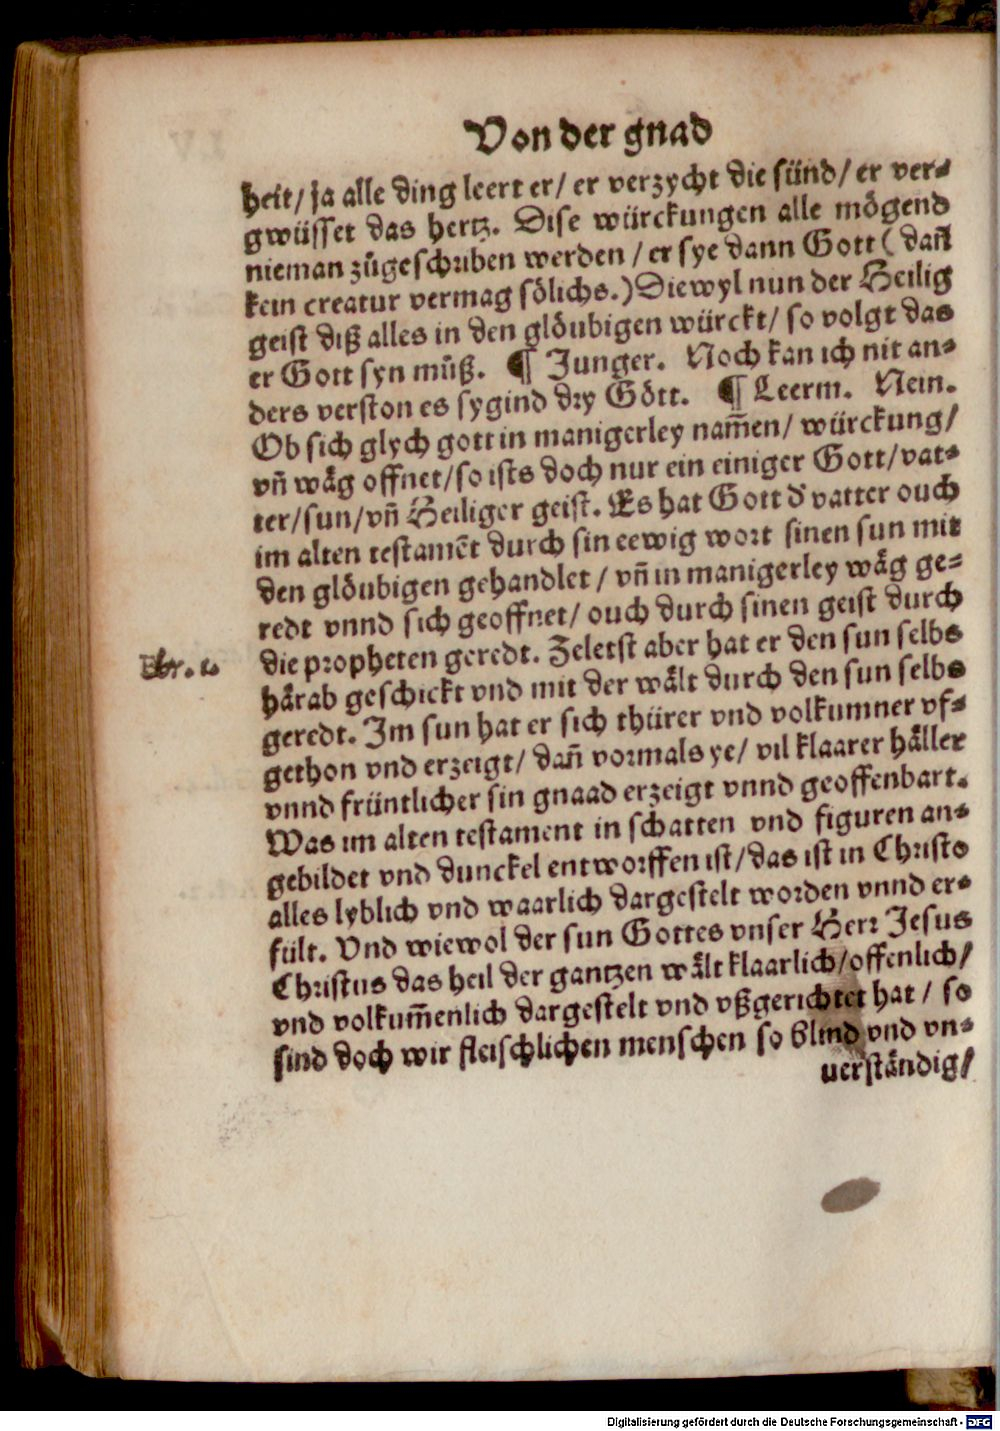 Von der gnad
heit/ ja alle ding leert er/ er verzycht die sünd/ er ver⸗
gwüsset das hertz. Dise würckungen alle mögend
nieman zůgeschriben werden / er sye dann Gott ( dañ
kein creatur vermag sölichs.) Diewyl nun der Heilig
geist diß alles in den glöubigen würckt/ so volgt das
er Gott syn můß. ¶ Junger. Noch kan ich nit an⸗
ders verston es sygind dry Gött. ¶ Leerm. Nein.
Ob sich glych gott in manigerley nam̃en/ würckung/
vñ wäg offnet/ so ists doch nur ein einiger Gott/ vat⸗
ter/ sun/ vñ Heiliger geist. Es hat Gott d' vatter ouch
im alten testamẽt durch sin eewig wort sinen sun mit
den glöubigen gehandlet / vñ in manigerley wäg ge⸗
redt vnnd sich geoffnet/ ouch durch sinen geist durch
die propheten geredt. Zeletst aber hat er den sun selbs
Ebr. 1.
härab geschickt vnd mit der wält durch den sun selbs
geredt. Im sun hat er sich thürer vnd volkumner vf⸗
gethon vnd erzeigt/ dañ vormals ye/ vil klaarer häller
vnnd früntlicher sin gnaad erzeigt vnnd geoffenbart.
Was im alten testament in schatten vnd figuren an⸗
gebildet vnd dunckel entworffen ist/ das ist in Christo
alles lyblich vnd waarlich dargestelt worden vnnd er⸗
fült. Vnd wiewol der sun Gottes vnser Herr Jesus
Christus das heil der gantzen wält klaarlich/ offenlich/
vnd volkum̃enlich dargestelt vnd vßgerichtet hat / so
sind doch wir fleischlichen menschen so blind vnd vn⸗
uerständig/
Digitalisierung gefördert durch die Deutsche Forschungsgemeinschaft - DFG